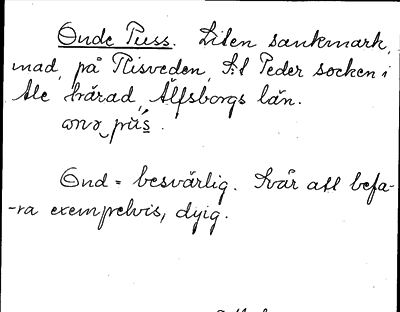 Onde Puss. Liten sankmark,
mad, på Risveden, S:t Peder socken i
Ale härad, Älfsborgs län.

Ond = besvärlig. Svår att befa-
-ra exempelvis, dyig.